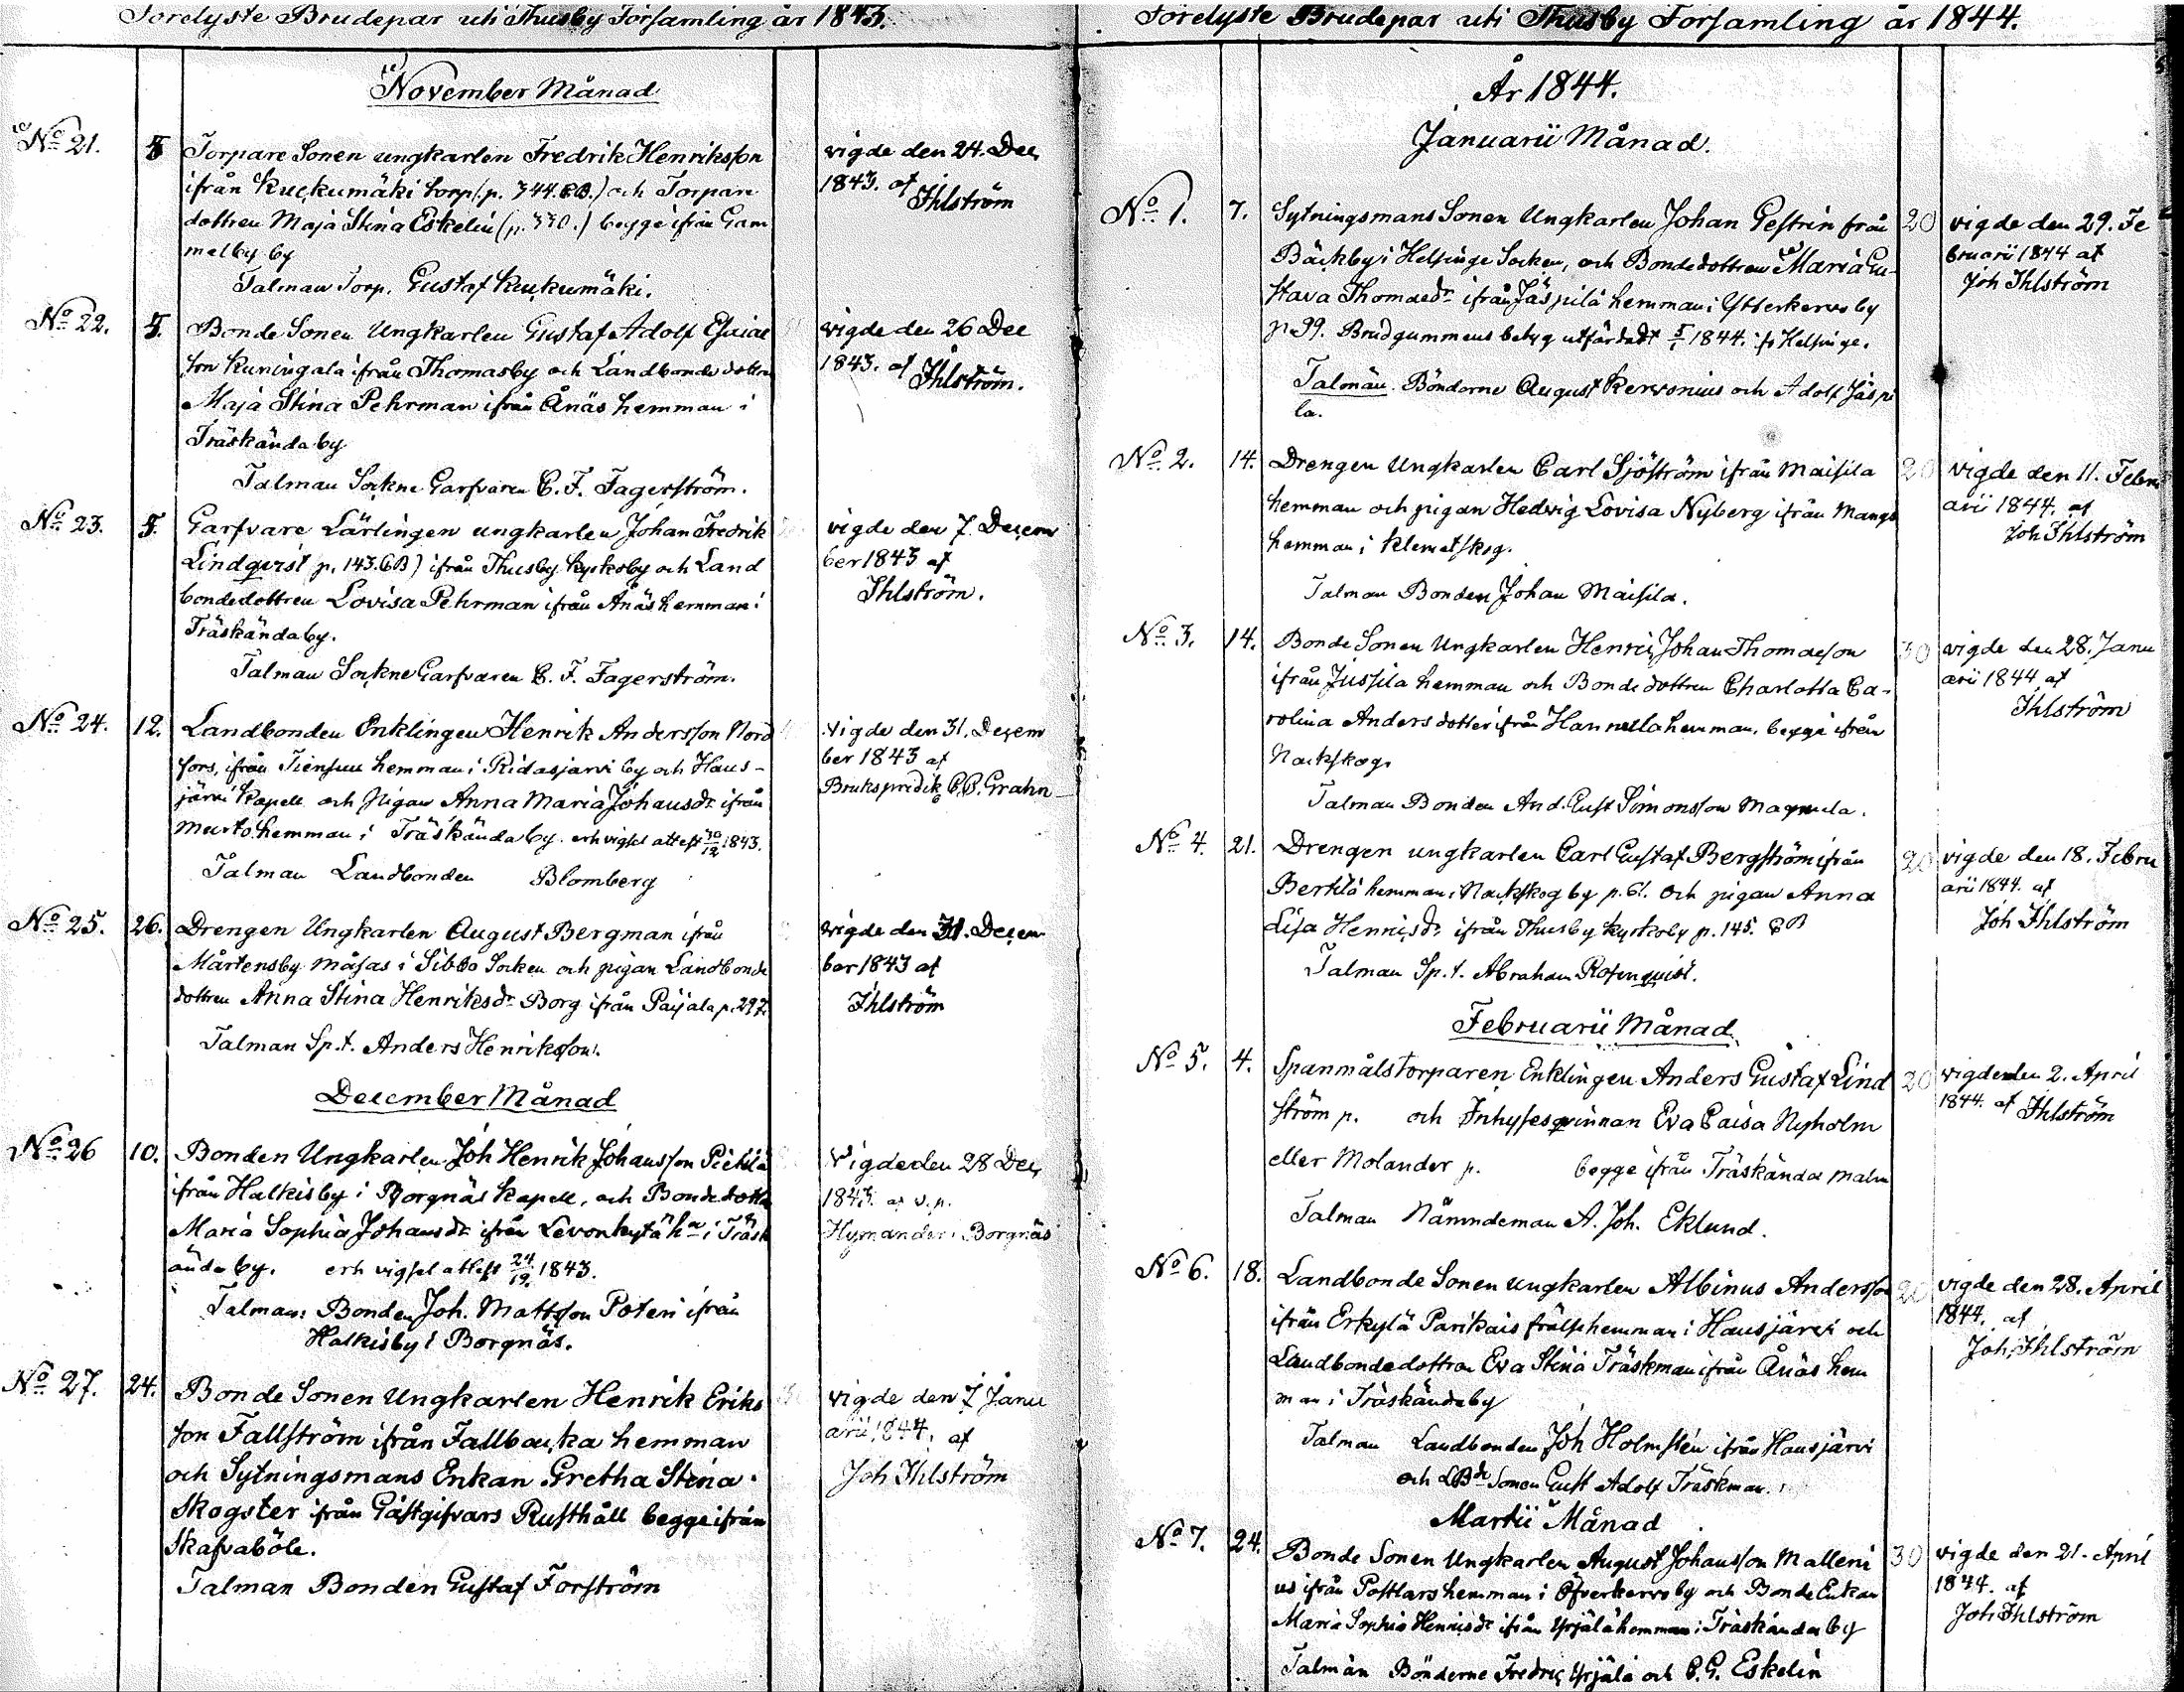 Forelyste Brudepar uti Thusby Församling år 1843.
November Månad
No 21.
5
Torpare Sonen ungkarlen Fredrik Henriksson
ifrån Kuckumäki torp (p. 344. CB.) och Torpare
dottren Maja Stina Eskelin (p. 330.) begge ifrån Gam
melby by
Talman Torp. Gustaf Kuckumäki.
vigde den 24. Dec
1843. af
Ihlström
No 22.
5.
Bonde Sonen Ungkarlen Gustaf Adolf Esaias
son Kuningala ifrån Thomasby och Landbonde dottren
Maja Stina Pehrman ifrån Ånäs hemman i
Träskända by
Talman Sockne Garfvaren C. F. Fagerström.
vigde den 26 Dec
1843. af
Ihlström.
No 23.
5.
Garfvare Lärlingen ungkarlen Johan Fredrik
Lindqvist p. 143. CB) ifrån Thusby Kyrkoby och Land
bondedottren Lovisa Pehrman ifrån Ånäs hemman i
Träskändaby.
Talman Sockne Garfvaren C. F. Fagerström.
vigde den 7 Decem
ber 1843 af
Ihlström.
No 24.
12.
Landbonden Enklingen Henrik Andersson Nord
fors, ifrån hemman i Ridasjärvi by och Haus-
järvi Kapell och Pigan Anna Maria Johansdr ifrån
Murto hemman i Träskända by. erh vigsel attest 30/12 1843.
Talman Landbonden Blomberg
vigde den 31. Decem
ber 1843 af
Brukspredik. C. C. Grahn
No 25.
26.
Drengen Ungkarlen August Bergman ifrån
Mårtensby Måsas i Sibbo Socken och pigan Landbonde
dottren Anna Stina Henriksdr Borg ifrån Paijala p. 297.
Talman Sp.t. Anders Henriksson.
vigde den 31. Decem
ber 1843 af
Ihlström
December Månad
No 26
10.
Bonden Ungkarlen Joh Henrik Johansson
ifrån Halkisby i Borgnäs Kapell, och Bonde dottren
Maria Sophia Johansdr ifrån Levonhytä hn i Träsk
ända by. erh vigsel attest 24/12 1843.
Talman: Bonden Joh. Mattsson Poteri ifrån
Halkisby i Borgnäs.
Vigde den 28 Dec
1843. af v.p.
Hymander i Borgnäs
No 27.
24.
Bonde Sonen Ungkarlen Henrik Eriks
son Fallström ifrån Fallbacka hemman
och Sytningsmans Enkan Gretha Stina
Skogster ifrån Gästgifvars Rusthåll begge ifrån
Skafvaböle.
Talman Bonden Gustaf Forström
vigde den 7 Janu
arii 1844, af
Joh Ihlström
Forelyste Brudepar uti Thusby Forsamling år 1844.
År 1844.
Januarii Månad.
No 1.
7.
Sytningsmans Sonen Ungkarlen Johan Gestrin från
Bäckby i Helsinge Socken, och Bondedottren Maria Gu-
stava Thomasdr ifrån Jäspilä hemman i Ytterkervo by
p. 99. Brudgummens betyg utfärdadt 5/1 1844. ifr Helsinge.
Talmän. Bönderne August Kervonius och Adolf Jäspi
la.
20
vigde den 29. Fe
bruarii 1844 af
Joh Ihlström
No 2.
14.
Drengen Ungkarlen Carl Sjöström ifrån Maisila
hemman och pigan Hedvig Lovisa Nyberg ifrån Mangs
hemman i Klemetskog.
Talman Bonden Johan Maisila.
20
vigde den 11. Febru
arii 1844. af
Joh Ihlström
No 3.
14.
Bonde Sonen Ungkarlen Henric Johan Thomasson
ifrån Jussila hemman och Bonde dottren Charlotta Ca-
rolina Anders dotter ifrån Hannula hemman, begge ifrån
Nackskog.
Talman Bonden And. Gust Simonsson Magnula.
30
vigde den 28. Janu
arii 1844 af
Ihlström
No 4.
21.
Drengen ungkarlen Carl Gustaf Bergström ifrån
Bertila hemman i Nackskog by p. 61. och pigan Anna
Lisa Henricsdr ifrån Thusby Kyrkoby p. 145. CB
Talman Sp.t. Abraham Rosenquist.
20
vigde den 18. Febru
arii 1844. af
Joh Ihlström
Februarii Månad
No 5.
4.
Spanmålstorparen Enklingen Anders Gustaf Lind
ström p. och Inhysesqvinnan Eva Caisa Nyholm
eller Molander p. begge ifrån Träskända malm
Talman Nämndeman A. Joh. Eklund.
20
vigde den 2. April
1844. af Ihlström
No 6.
18.
Landbonde Sonen ungkarlen Albinus Andersson
ifrån Erkylä Parikais frälsehemman i Hausjärvi och
Landbondedottren Eva Stina Träskman ifrån Ånäs hem
man i Träskändaby
Talman Landbonden Joh Holmstén ifrån Hausjärvi
och LBde Sonen Gust Adolf Träskman.
20
vigde den 28. April
1844. af
Joh. Ihlström
Martii Månad
No 7.
24.
Bonde Sonen Ungkarlen August Johansson Malleni
us ifrån Postlars hemman i Öfverkervo by och Bonde Enkan
Maria Sophia Henricsdr ifrån Yrjälä hemman i Träskända by
Talmän Bönderne Fredric Yrjälä och C. G. Eskelin
30
vigde den 21. April
1844. af
Joh Ihlström